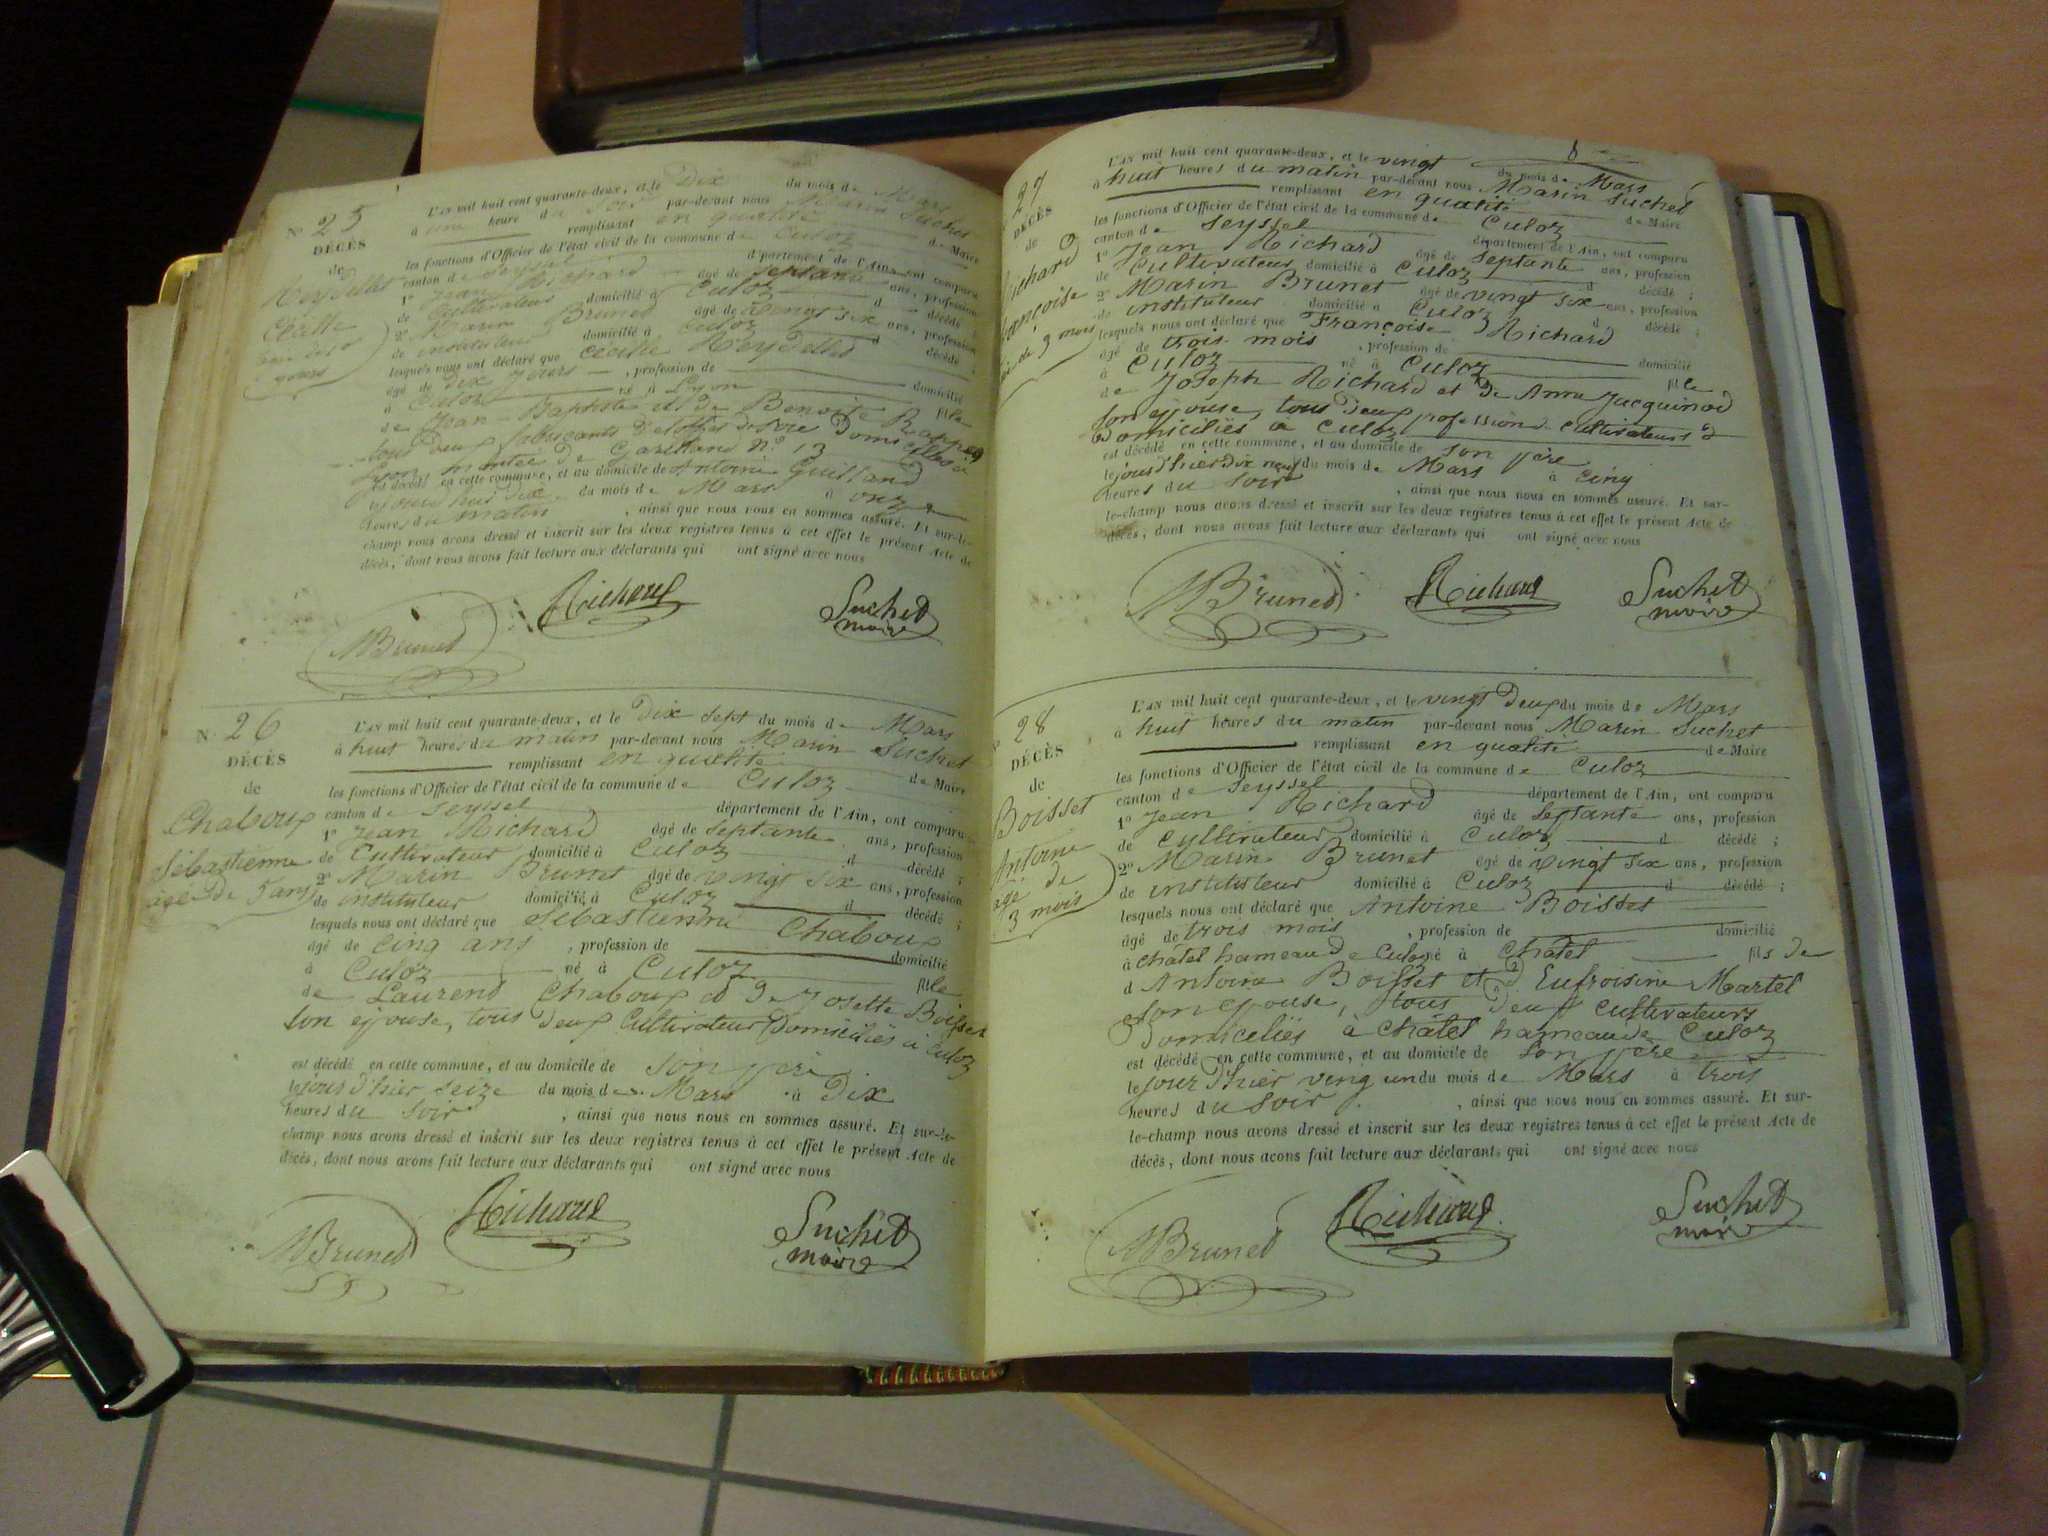 N° 25
DÉCÈS
de
Cécille
L'AN mil huit cent quarante-deux, et le Dix du mois de Mars
à une heure du Soir par-devant nous Marin Suchet
remplissant en qualité de Maire
les fonctions d'Officier de l'état civil de la commune de Culoz
canton de Seyssel département de l'Ain, ont comparu
1° Jean Richard âgé de Septante ans, profession
de Cultivateur domicilié à Culoz d décédé ;
2° Marin Brunet âgé de vingt six ans, profession
de instituteur domicilié à Culoz d décédé ;
lesquels nous ont déclaré que Cécille
âgé de Dix jours , profession de domicilié
à Culoz né à Lyon fille
de Jean-Baptiste et de Benoite
tous deux fabriquants d'étoffes de soie Domiciliés à
Lyon montée de N.° 13
est décédé en cette commune, et au domicile de Antoine Guilland
du mois de Mars à onze
heures du matin , ainsi que nous nous en sommes assuré. Et sur-le-
champ nous avons dressé et inscrit sur les deux registres tenus à cet effet le présent Acte de
décès, dont nous avons fait lecture aux déclarants qui ont signé avec nous
MBrunet Richard Suchet
maire
N° 26
DÉCÈS
de
Chaboux
Sébastienne
agée De 5 ans
L'AN mil huit cent quarante-deux, et le Dix Sept du mois de Mars
à huit heures du matin par-devant nous Marin Suchet
remplissant en qualité de Maire
les fonctions d'Officier de l'état civil de la commune de Culoz
canton de Seyssel département de l'Ain, ont comparu
1° Jean Richard âgé de Septante ans, profession
de Cultivateur domicilié à Culoz d décédé ;
2° Marin Brunet âgé de vingt six ans, profession
de instituteur domicilié à Culoz d décédé ;
lesquels nous ont déclaré que Sébastienne Chaboux
âgé de cinq ans , profession de domicilié
à Culoz né à Culoz fille
de Laurend Chaboux et De Josette Boisset
son epouse, tous Deux Cultivateurs Domiciliés à Culoz
est décédé en cette commune, et au domicile de son père
le jour d'hier seize du mois de Mars à Dix
heures du Soir , ainsi que nous nous en sommes assuré. Et sur-le-
champ nous avons dressé et inscrit sur les deux registres tenus à cet effet le présent Acte de
décès, dont nous avons fait lecture aux déclarants qui ont signé avec nous
MBrunet Richard Suchet
maire
8
27
DÉCÈS
de
Richard
Françoise
L'AN mil huit cent quarante-deux, et le vingt du mois de Mars
à huit heures du matin par-devant nous Marin Suchet
remplissant en qualité de Maire
les fonctions d'Officier de l'état civil de la commune de Culoz
canton de Seyssel département de l'Ain, ont comparu
1° Jean Richard âgé de Septante ans, profession
de Cultivateur domicilié à Culoz d décédé ;
2° Marin Brunet âgé de vingt six ans, profession
de instituteur domicilié à Culoz d décédé ;
lesquels nous ont déclaré que Françoise Richard
âgé de trois mois , profession de domicilié
à Culoz né à Culoz fille
de Joseph Richard et De Anne Jacquinod
son epouse, tous Deux profession D cultivateurs
Domiciliés à Culoz
est décédé en cette commune, et au domicile de son père
le jour d'hier Dix neuf du mois de Mars à cinq
heures du Soir , ainsi que nous nous en sommes assuré. Et sur-
le-champ nous avons dressé et inscrit sur les deux registres tenus à cet effet le présent Acte de
décès, dont nous avons fait lecture aux déclarants qui ont signé avec nous
MBrunet Richard Suchet
maire
28
DÉCÈS
de
Boisset
Antoine
agé de
3 mois
L'AN mil huit cent quarante-deux, et le vingt Deux du mois de Mars
à huit heures du matin par-devant nous Marin Suchet
remplissant en qualité de Maire
les fonctions d'Officier de l'état civil de la commune de Culoz
canton de Seyssel département de l'Ain, ont comparu
1° Jean Richard âgé de Septante ans, profession
de Cultivateur domicilié à Culoz d décédé ;
2° Marin Brunet âgé de vingt six ans, profession
de instituteur domicilié à Culoz d décédé ;
lesquels nous ont déclaré que Antoine Boisset
âgé de trois mois , profession de domicilié
à châtel hameau de Culoz né à Châtel fils de
d Antoine Boisset et d Eufroisine Martel
son epouse, tous Deux cultivateurs
Domiceliés à Châtel hameau de Culoz
est décédé en cette commune, et au domicile de son père
le jour d'hier ving un du mois de Mars à trois
heures du Soir , ainsi que nous nous en sommes assuré. Et sur-
le-champ nous avons dressé et inscrit sur les deux registres tenus à cet effet le présent Acte de
décès, dont nous avons fait lecture aux déclarants qui ont signé avec nous
MBrunet Richard Suchet
maire